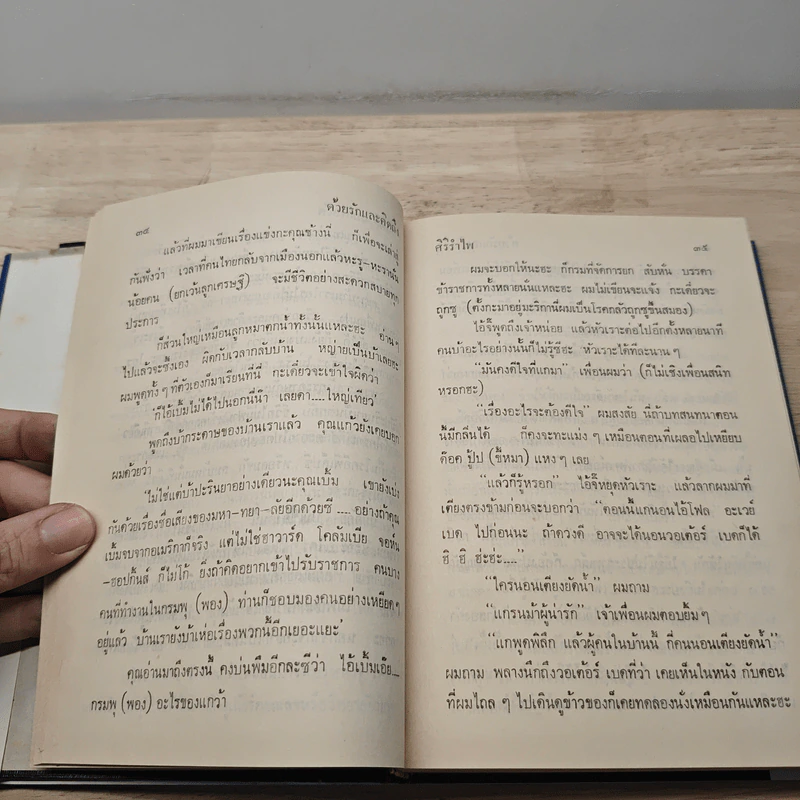 ๓๔
ด้วยรักและคิดถึง
แล้วที่ผมมาเขียนเรื่องแข่งกะคุณช้างนี่ ก็เพื่อจะเล่าสู่
กันฟังว่า เวลาที่คนไทยกลับจากเมืองนอกแล้วหะรู-หะรานั้น
น้อยคน (ยกเว้นลูกเศรษฐี) จะมีชีวิตอย่างสะดวกสบายทุก
ประการ
ก็ส่วนใหญ่เหมือนลูกหมาตกน้ำทั้งนั้นแหละฮะ อ่านๆ
ไปแล้วจะซึ้งเอง ผิดกับเวลากลับบ้าน หญ่ายเป็นบ้าเลยฮะ
ผมพูดทั้งๆ ที่ตัวเองก็มาเรียนที่นี่ กะเดี๋ยวจะเข้าใจผิดว่า
'ก็ไอ้เบิ้มไม่ได้ไปนอกนี่นิว่า เลยดา....ใหญ่เทียว'
พูดถึงบ้ากระดาษของบ้านเราแล้ว คุณแก้วยังเคยบอก
ผมด้วยว่า
'ไม่ใช่แต่บ้าปะรินยาอย่างเดียวนะคุณเบิ้ม เขายังเบ่ง
กันด้วยเรื่องชื่อเสียงของมหา-ทยา-ลัยอีกด้วยซี .... อย่างถ้าคุณ
เบิ้มจบจากอเมริกาก็จริง แต่ไม่ใช่ฮาวาร์ด โคลัมเบีย จอห์น
-ฮอปกิ้นส์ ก็ไม่โก้ ยิ่งถ้าคิดอยากเข้าไปรับราชการ คนบาง
คนที่ทำงานในกรมพุ (พอง) ท่านก็ชอบมองคนอย่างเหยียดๆ
อยู่แล้ว บ้านเรายังบ้าเห่อเรื่องพวกนี้อีกเยอะแยะ'
คุณอ่านมาถึงตรงนี้ คงบ่นพึมอีกละซีว่า ไอ้เบิ้มเอ๊ย....
กรมพุ (พอง) อะไรของแกว้า
ศิริรำไพ
๓๕
ผมจะบอกให้นะฮะ ก็กรมที่จัดการยก สับหัน บรรดา
ข้าราชการทั้งหลายนั่นแหละฮะ ผมไม่เขียนจะแจ้ง กะเดี๋ยวจะ
ถูกซู (ตั้งกะมาอยู่มะริกานี่ผมเป็นโรคกลัวถูกซูขึ้นสมอง)
ไอ้จี๊พูดถึงเจ้าหน่อย แล้วหัวเราะต่อไปอีกตั้งหลายนาที
คนบ้าอะไรอย่างนั้นก็ไม่รู้ซีฮะ หัวเราะได้ทีละนานๆ
"มันคงดีใจที่แกมา" เพื่อนผมว่า (ก็ไม่เชิงเพื่อนสนิท
หรอกฮะ)
"เรื่องอะไรจะต้องดีใจ" ผมสงสัย นี่ถ้าบทสนทนาตอน
นี้มีกลิ่นได้ ก็คงจะทะแม่งๆ เหมือนตอนที่เผลอไปเหยียบ
ด๊อค ปู้ป (ขี้หมา) แหงๆ เลย
"แล้วก็รู้หรอก" ไอ้จี๊หยุดหัวเราะ แล้วลากผมมาที่
เตียงตรงข้ามก่อนจะบอกว่า "ตอนนี้แกนอนไอ้โฟล อะเวย์
เบด ไปก่อนนะ ถ้าดวงดี อาจจะได้นอนวอเต้อร์ เบดก็ได้
ฮิ ฮิ ฮ่ะฮ่ะ...."
"ใครนอนเตียงยัดน้ำ" ผมถาม
"แกรนม้าผู้น่ารัก" เจ้าเพื่อนผมตอบยิ้มๆ
"แกพูดพิลึก แล้วผู้คนในบ้านนี้ กี่คนนอนเตียงยัดน้ำ"
ผมถาม พลางนึกถึงวอเต้อร์ เบดที่ว่า เคยเห็นในหนัง กับตอน
ที่ผมไถล ๆ ไปเดินดูข้าวของก็เคยทดลองนั่งเหมือนกันแหละฮะ